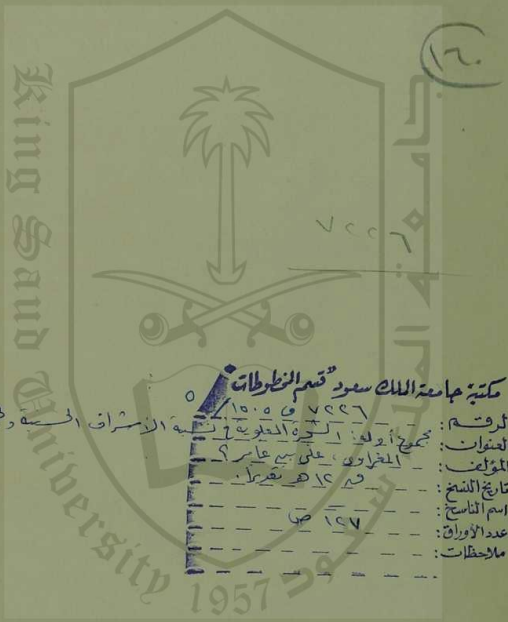 ١٦٠
٧٢٢٦
King Saud University
1957
مكتبة جامعة الملك سعود قسم المخطوطات
الرقم: ٧٢٢٦ ف ١٥٠٥ / ٥
العنوان: مجموع أوله: الشجرة العلوية في نسبة الأشراف الحسنية
المؤلف: المغراوي، علي بن عامر؟
تاريخ النسخ: ق ١٢ هـ تقديرا.
اسم الناسخ:
عدد الأوراق: ١٢٧ ص
ملاحظات: